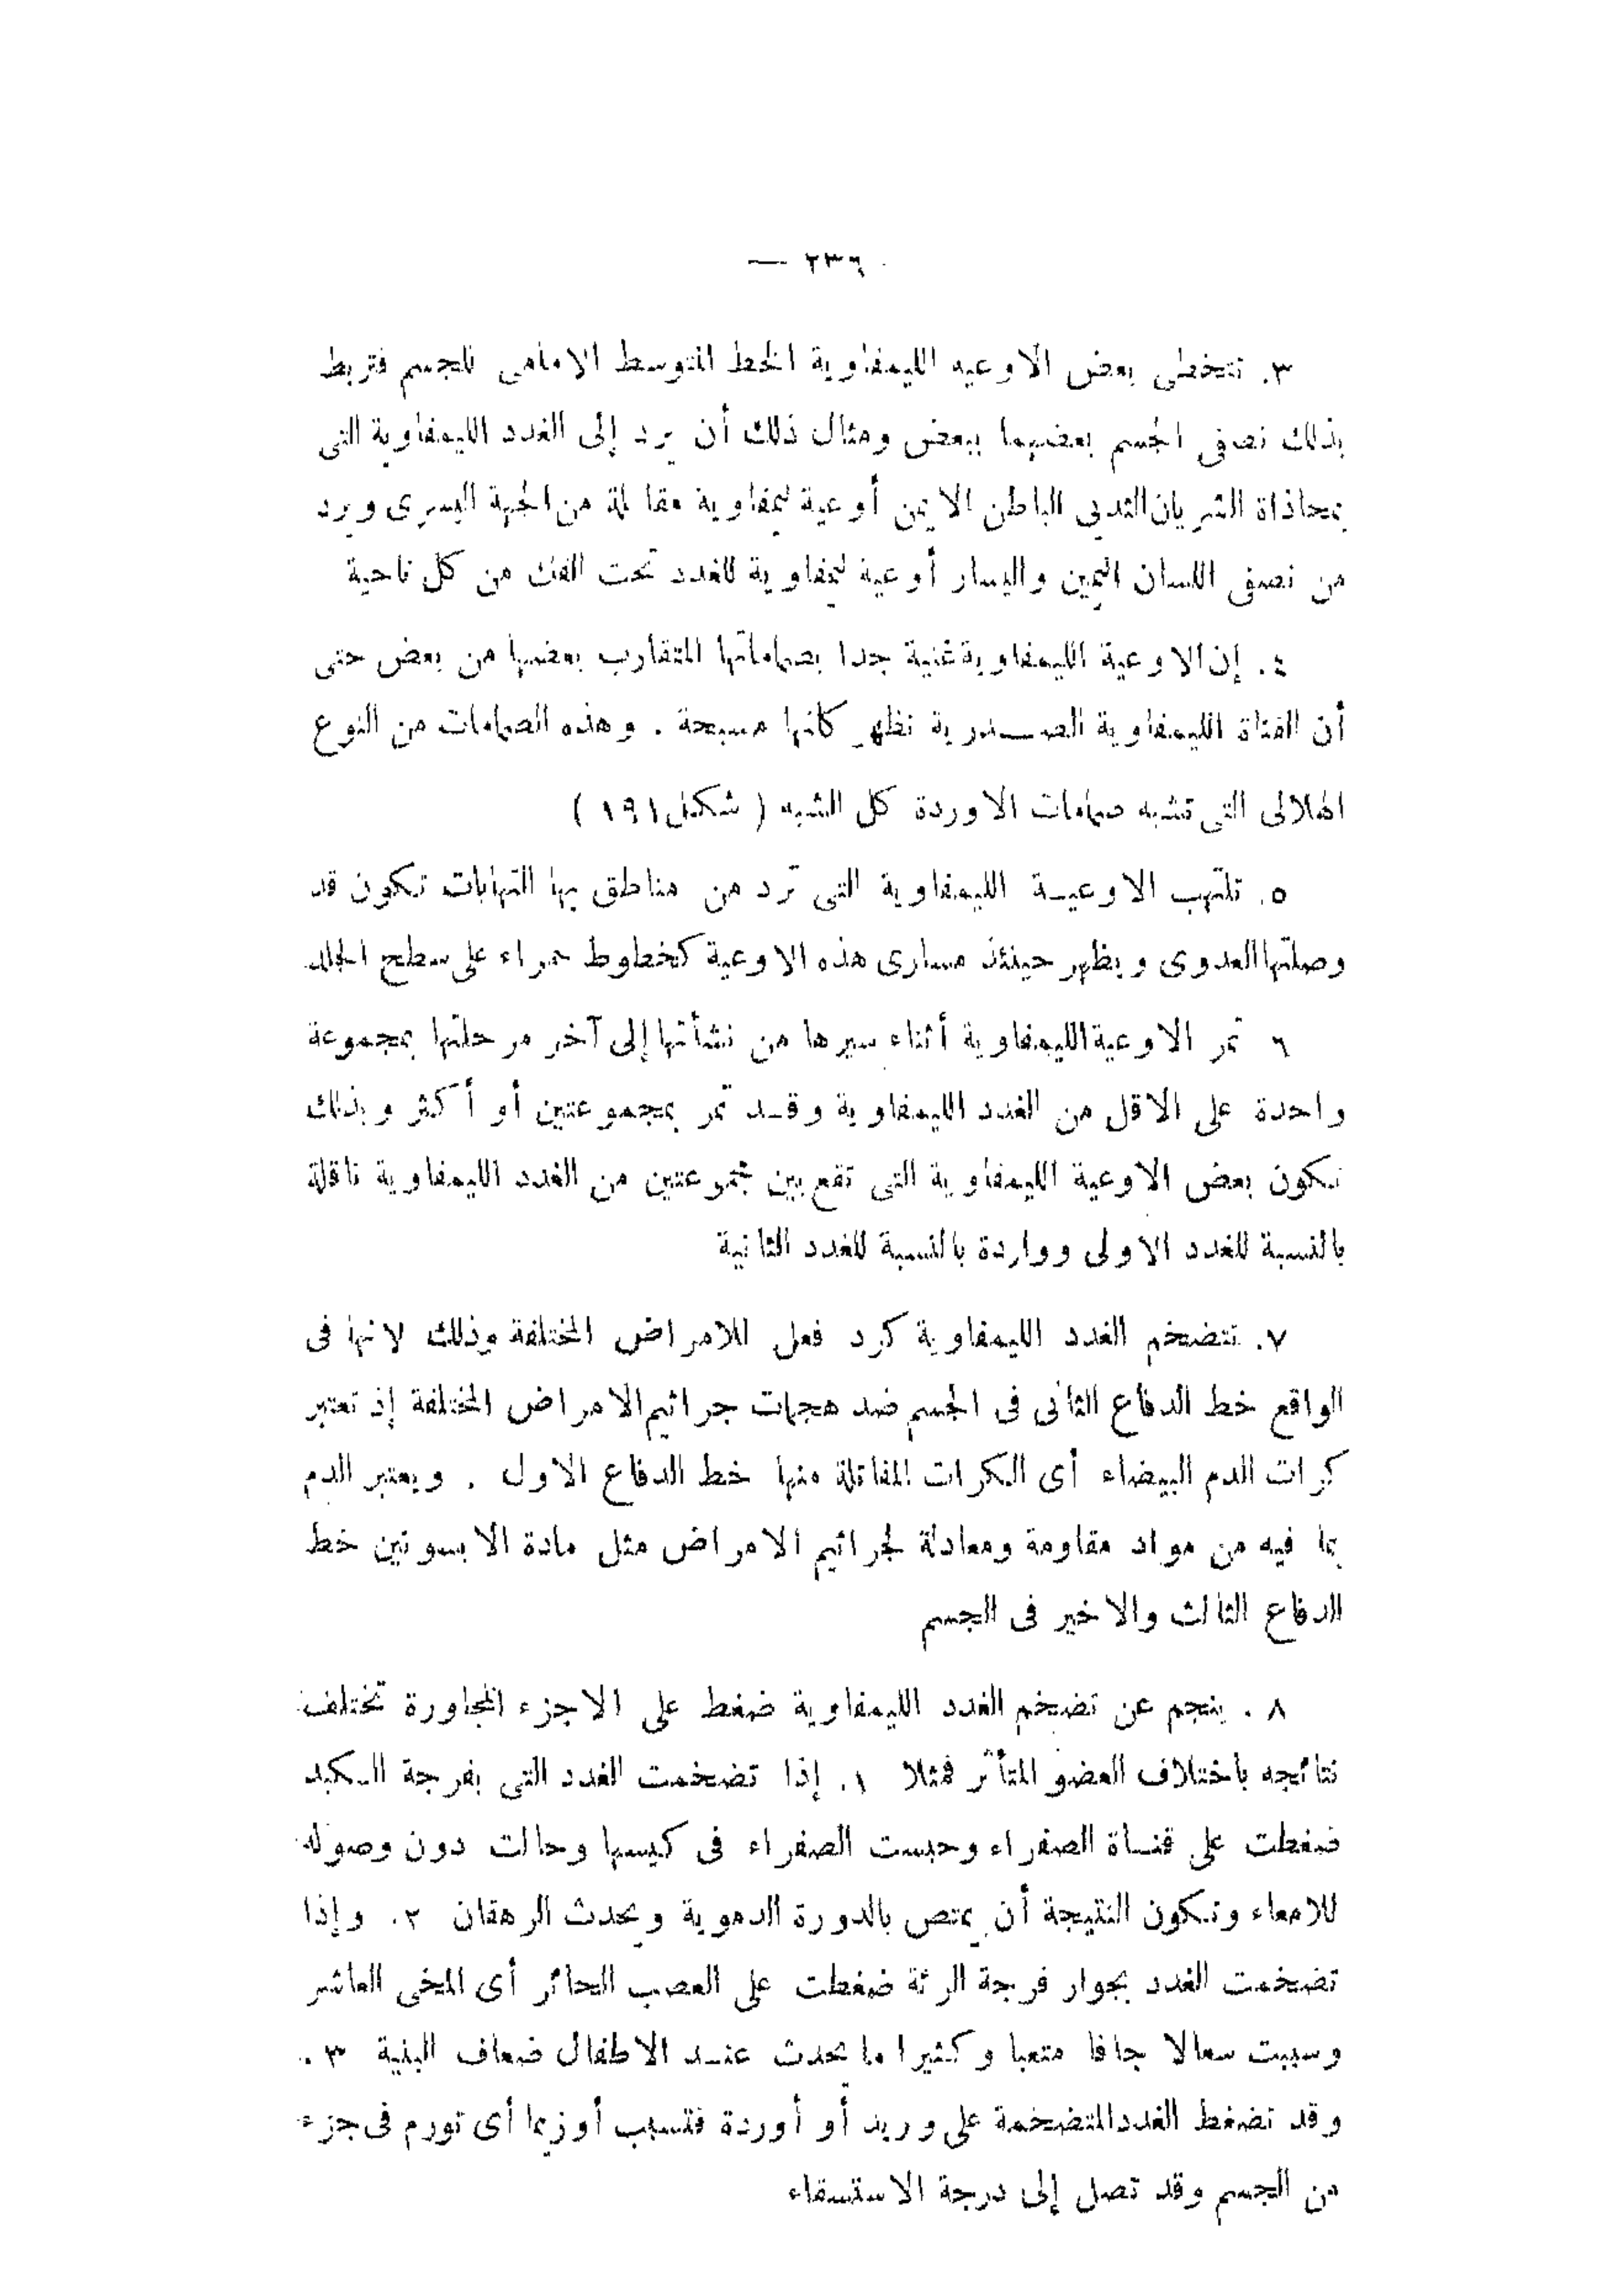 ٢٣٦ —
٣. تتخطى بعض الاوعيه الليمفاوية الخط المتوسط الامامى للجسم فتربط
بذلك نصفى الجسم بعضهما ببعض ومثال ذلك أن يرد إلى الغدد الليمفاوية التى
بمحاذاة الشريان الثديى الباطن الايمن أوعية ليمفاوية مقابلة من الجهة اليسرى ويرد
من نصفى اللسان اليمين واليسار أوعية ليمفاوية للغدد تحت الفك من كل ناحية
٤. إن الاوعية الليمفاوية غنية جدا بصماماتها المتقارب بعضها من بعض حتى
أن القناة الليمفاوية الصـدرية تظهر كأنها مسبحة . وهذه الصمامات من النوع
الهلالى التى تشبه صمامات الاوردة كل الشبه ( شكل ١٩١ )
٥. تلتهب الاوعيـة الليمفاوية التى ترد من مناطق بها التهابات تكون قد
وصلتها العدوى ويظهر حينئذ مسارى هذه الاوعية كخطوط حمراء على سطح الجلد
٦ تمر الاوعية الليمفاوية أثناء سيرها من نشأتها إلى آخر مرحلتها بمجموعة
واحدة على الاقل من الغدد الليمفاوية وقـد تمر بمجموعتين أو أكثر وبذلك
تكون بعض الاوعية الليمفاوية التى تقع بين مجموعتين من الغدد الليمفاوية ناقلة
بالنسبة للغدد الاولى وواردة بالنسبة للغدد الثانية
٧. تتضخم الغدد الليمفاوية كرد فعل للامراض المختلفة وذلك لانها فى
الواقع خط الدفاع الثانى فى الجسم ضد هجمات جراثيم الامراض المختلفة إذ تعتبر
كرات الدم البيضاء أى الكرات المقاتلة منها خط الدفاع الاول . ويعتبر الدم
بما فيه من مواد مقاومة ومعادلة لجراثيم الامراض مثل مادة الابسونين خط
الدفاع الثالث والاخير فى الجسم
٨ . ينجم عن تضخم الغدد الليمفاوية ضغط على الاجزء المجاورة تختلف
نتائجه باختلاف العضو المتأثر فمثلا ١. إذا تضخمت الغدد التى بفرجة الكبد
ضغطت على قنـاة الصفراء وحبست الصفراء فى كيسها وحالت دون وصوله
للامعاء وتكون النتيجة أن يمتص بالدورة الدموية ويحدث الرهقان ٢. وإذا
تضخمت الغدد بجوار فرجة الرئة ضغطت على العصب الحائر أى المخى العاشر
وسببت سعالا جافا متعبا وكثيرا ما يحدث عنـد الاطفال ضعاف البنية ٣.
وقد تضغط الغدد المتضخمة على وريد أو أوردة فتسبب أوزيما أى تورم فى جزء
من الجسم وقد تصل إلى درجة الاستسقاء